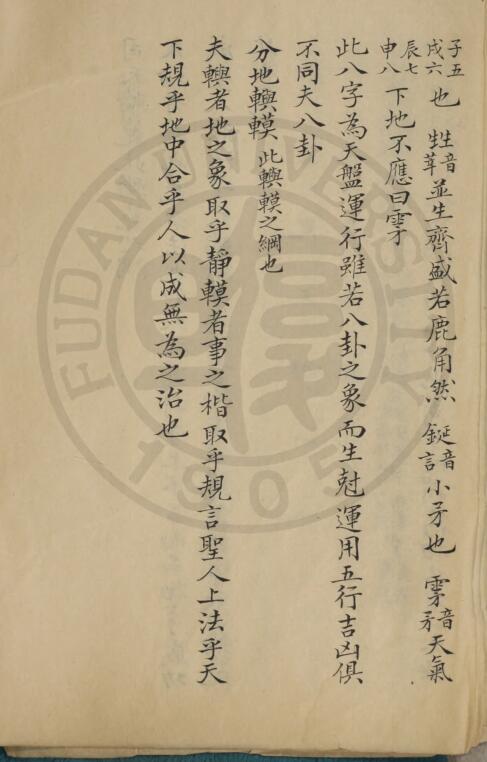 子五戌六也 甡音莘並生齊盛若鹿角然 鋋音言小矛也 雺音矛天氣
辰七申八下地不應曰雺
此八字為天盤運行雖若八卦之象而生尅運用五行吉凶俱
不同夫八卦
分地 此之綱也
夫者地之象取乎靜者事之楷取乎規言聖人上法乎天
下規乎地中合乎人以成無為之治也
FUDAN UNIVERSITY
1905